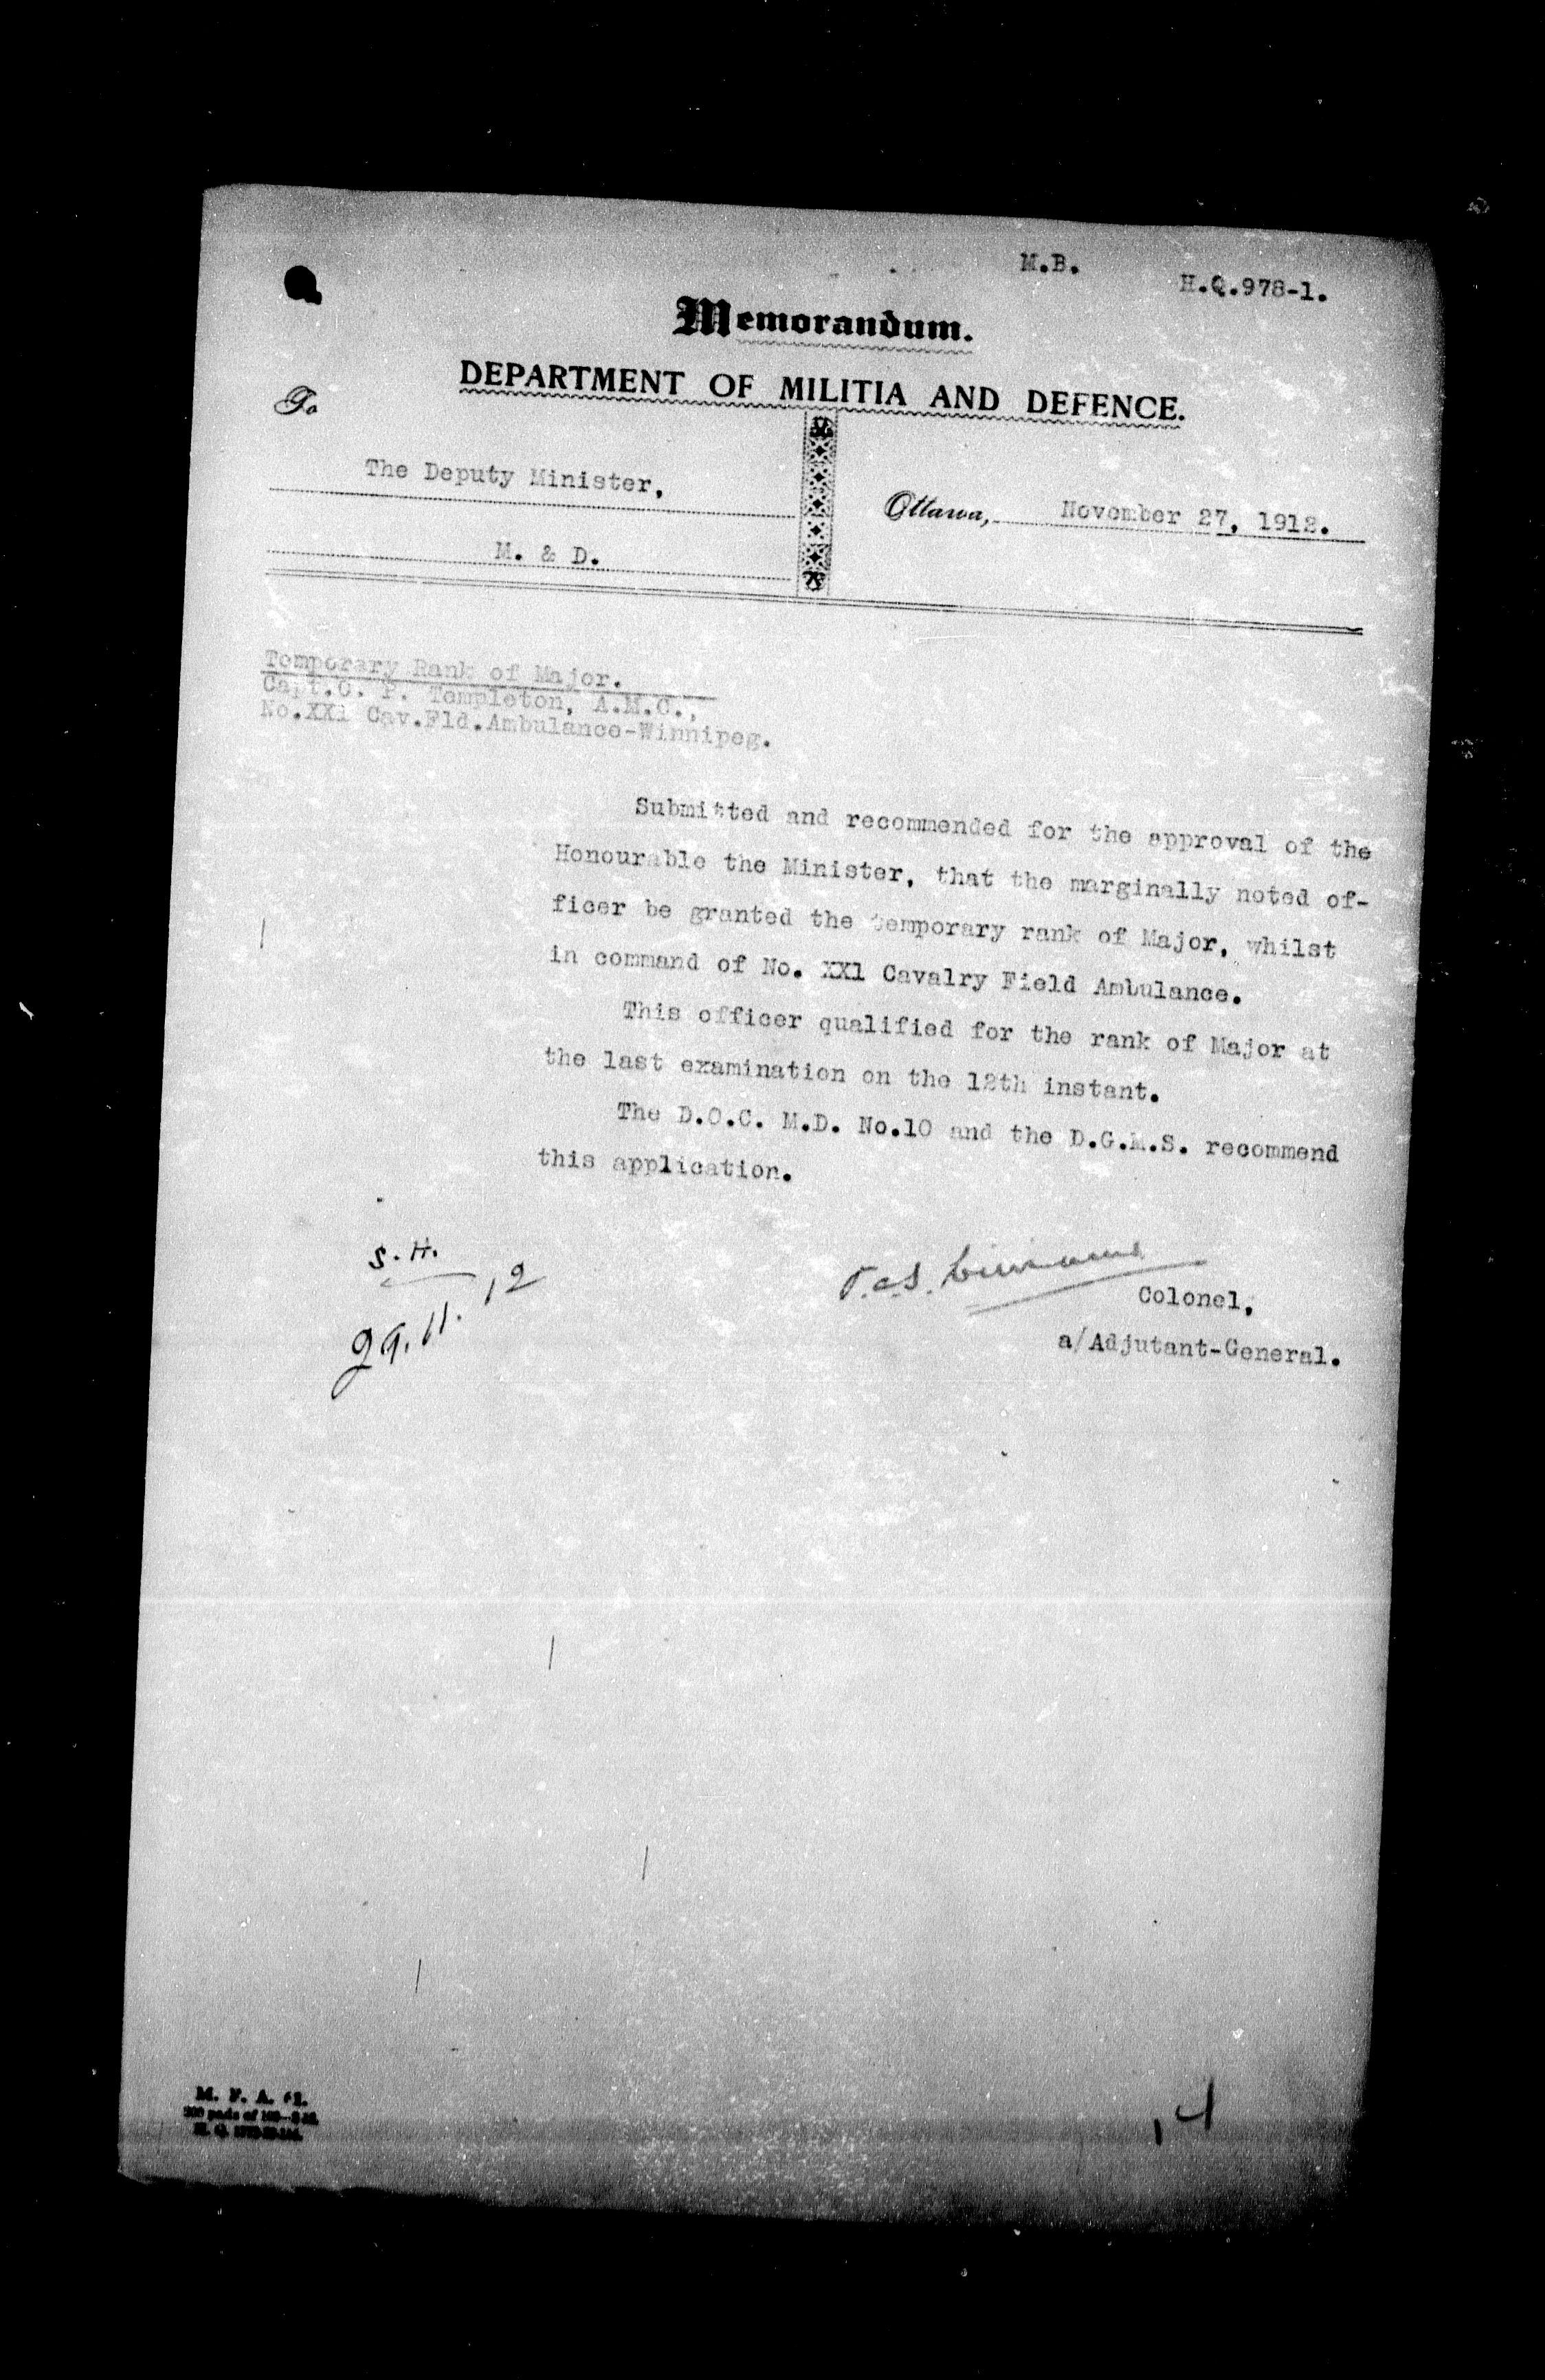 M.B.
H.Q.978-1.
Memorandum.
DEPARTMENT OF MILITIA AND DEFENCE.
To
The Deputy Minister,
M. & D.
Ottawa, November 27, 1912.
Temporary Rank of Major.
Capt.C. P. Templeton, A.M.C.,
No.XX1 Cav.Fld.Ambulance-Winnipeg.
Submitted and recommended for the approval of the
Honourable the Minister, that the marginally noted of-
ficer be granted the temporary rank of Major, whilst
in command of No. XX1 Cavalry Field Ambulance.
This officer qualified for the rank of Major at
the last examination on the 12th instant.
The D.O.C. M.D. No.10 and the D.G.M.S. recommend
this application.
S.H.
29.11.12
Colonel,
a/Adjutant-General.
M. F. A.
pads of
H. Q.
14